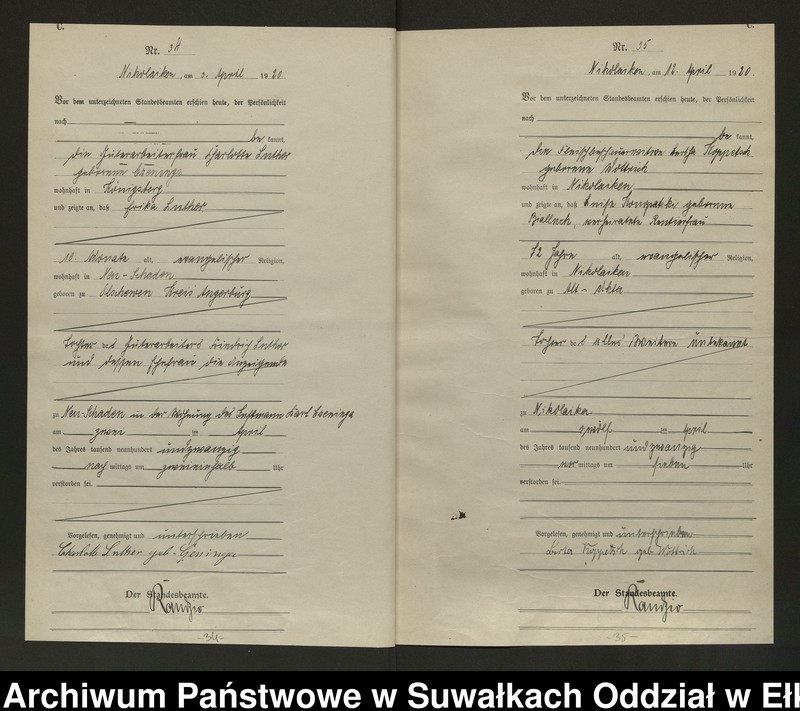 C.
Nr. 34
Nikolaiken, am 3. April 1920
Vor dem unterzeichneten Standesbeamten erschien heute, der Persönlichkeit
nach
be kannt,
die Güterarbeiterfrau Charlotte Luther
geborene
wohnhaft in Königsberg
und zeigte an, daß Erika Luther
10 Monate alt, evangelischer Religion,
wohnhaft in Neu-Schaden
geboren zu Olschewen Kreis Angerburg
Tochter des Güterarbeiters Friedrich Luther
und dessen Ehefrau die Anzeigende
zu Neu-Schaden in der Wohnung des Karl
am zwei ten April
des Jahres tausend neunhundert undzwanzig
nach mittags um zweieinhalb Uhr
verstorben sei.
Vorgelesen, genehmigt und unterschrieben
Charlotte Luther geb.
Der Standesbeamte.
Randzio
-34-
C.
Nr. 35
Nikolaiken, am 12. April 1920
Vor dem unterzeichneten Standesbeamten erschien heute, der Persönlichkeit
nach
be kannt,
die Fleischbeschauerwitwe Bertha Koppetsch
geborene Wottrich
wohnhaft in Nikolaiken
und zeigte an, daß Luise geborene
verheiratete Rentierfrau
72 Jahre alt, evangelischer Religion,
wohnhaft in Nikolaiken
geboren zu Alt-Ukta
Tochter des alles Weitere unbekannt
zu Nikolaiken
am zwölf ten April
des Jahres tausend neunhundert undzwanzig
vor mittags um sieben Uhr
verstorben sei.
Vorgelesen, genehmigt und unterschrieben
Berta Koppetsch geb. Wottrich
Der Standesbeamte.
Randzio
-35-
Archiwum Państwowe w Suwałkach Oddział w Ełk